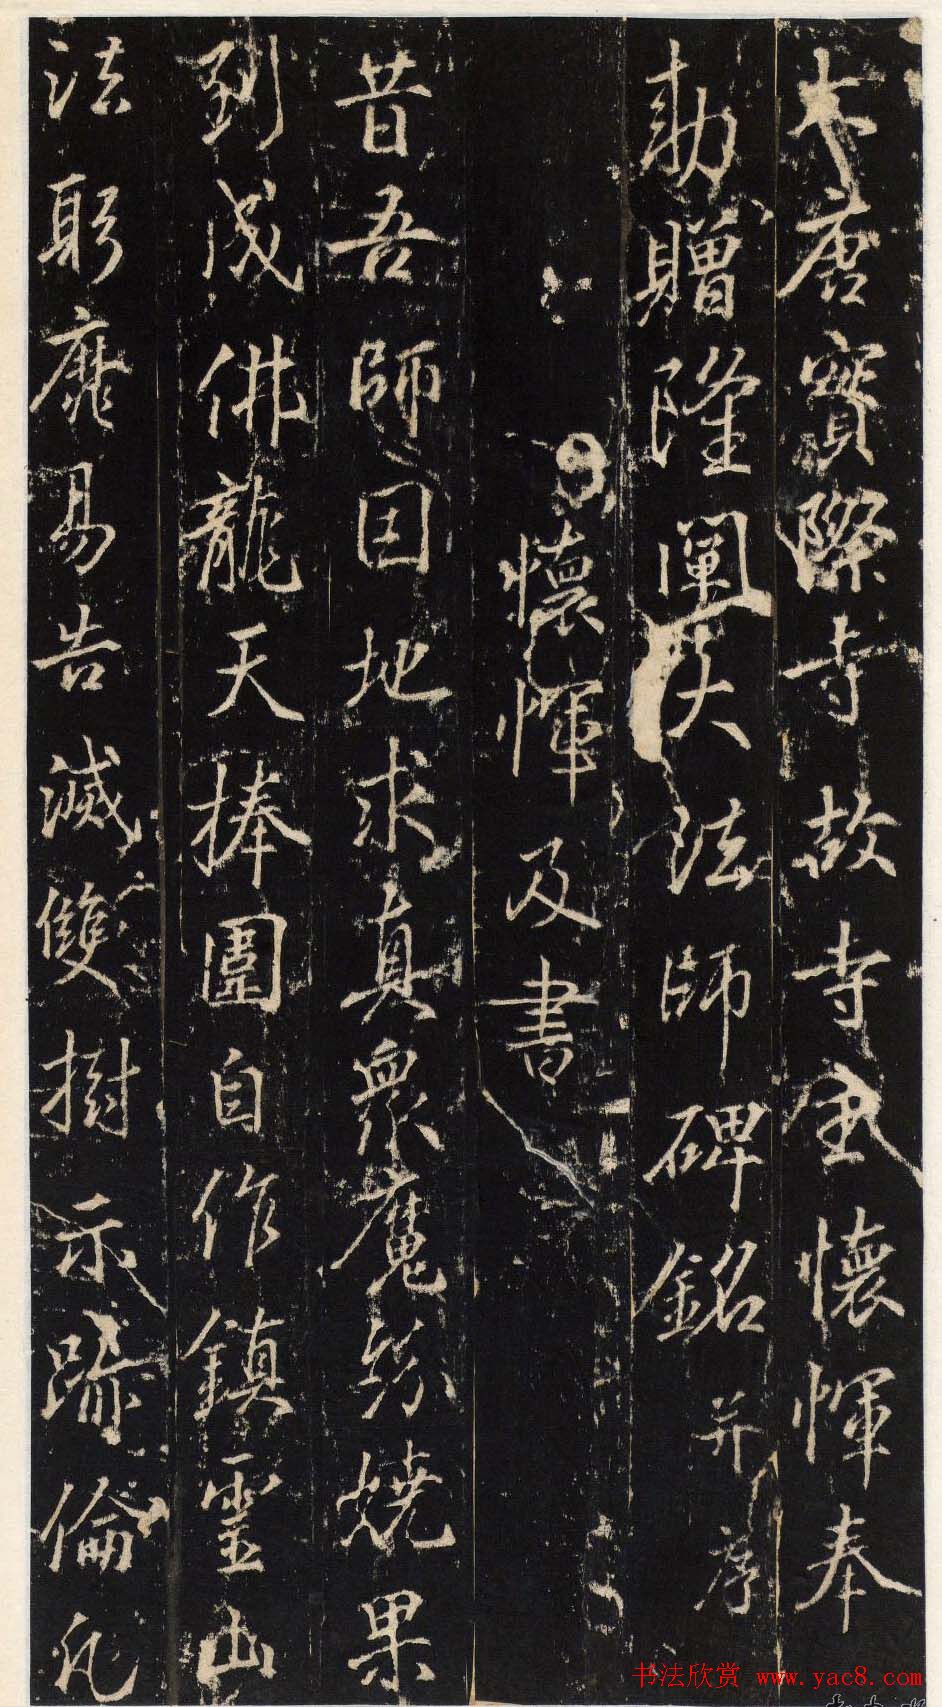 大唐實際寺故寺主懷惲奉
勅贈隆闡大法師碑銘并序
懷惲及書
昔吾師因地求真眾魔紛嬈果
到成佛龍天捧圍自作鎮靈山
法躬靡易告滅雙樹示跡倫凡
书法欣赏 www.yac8.com